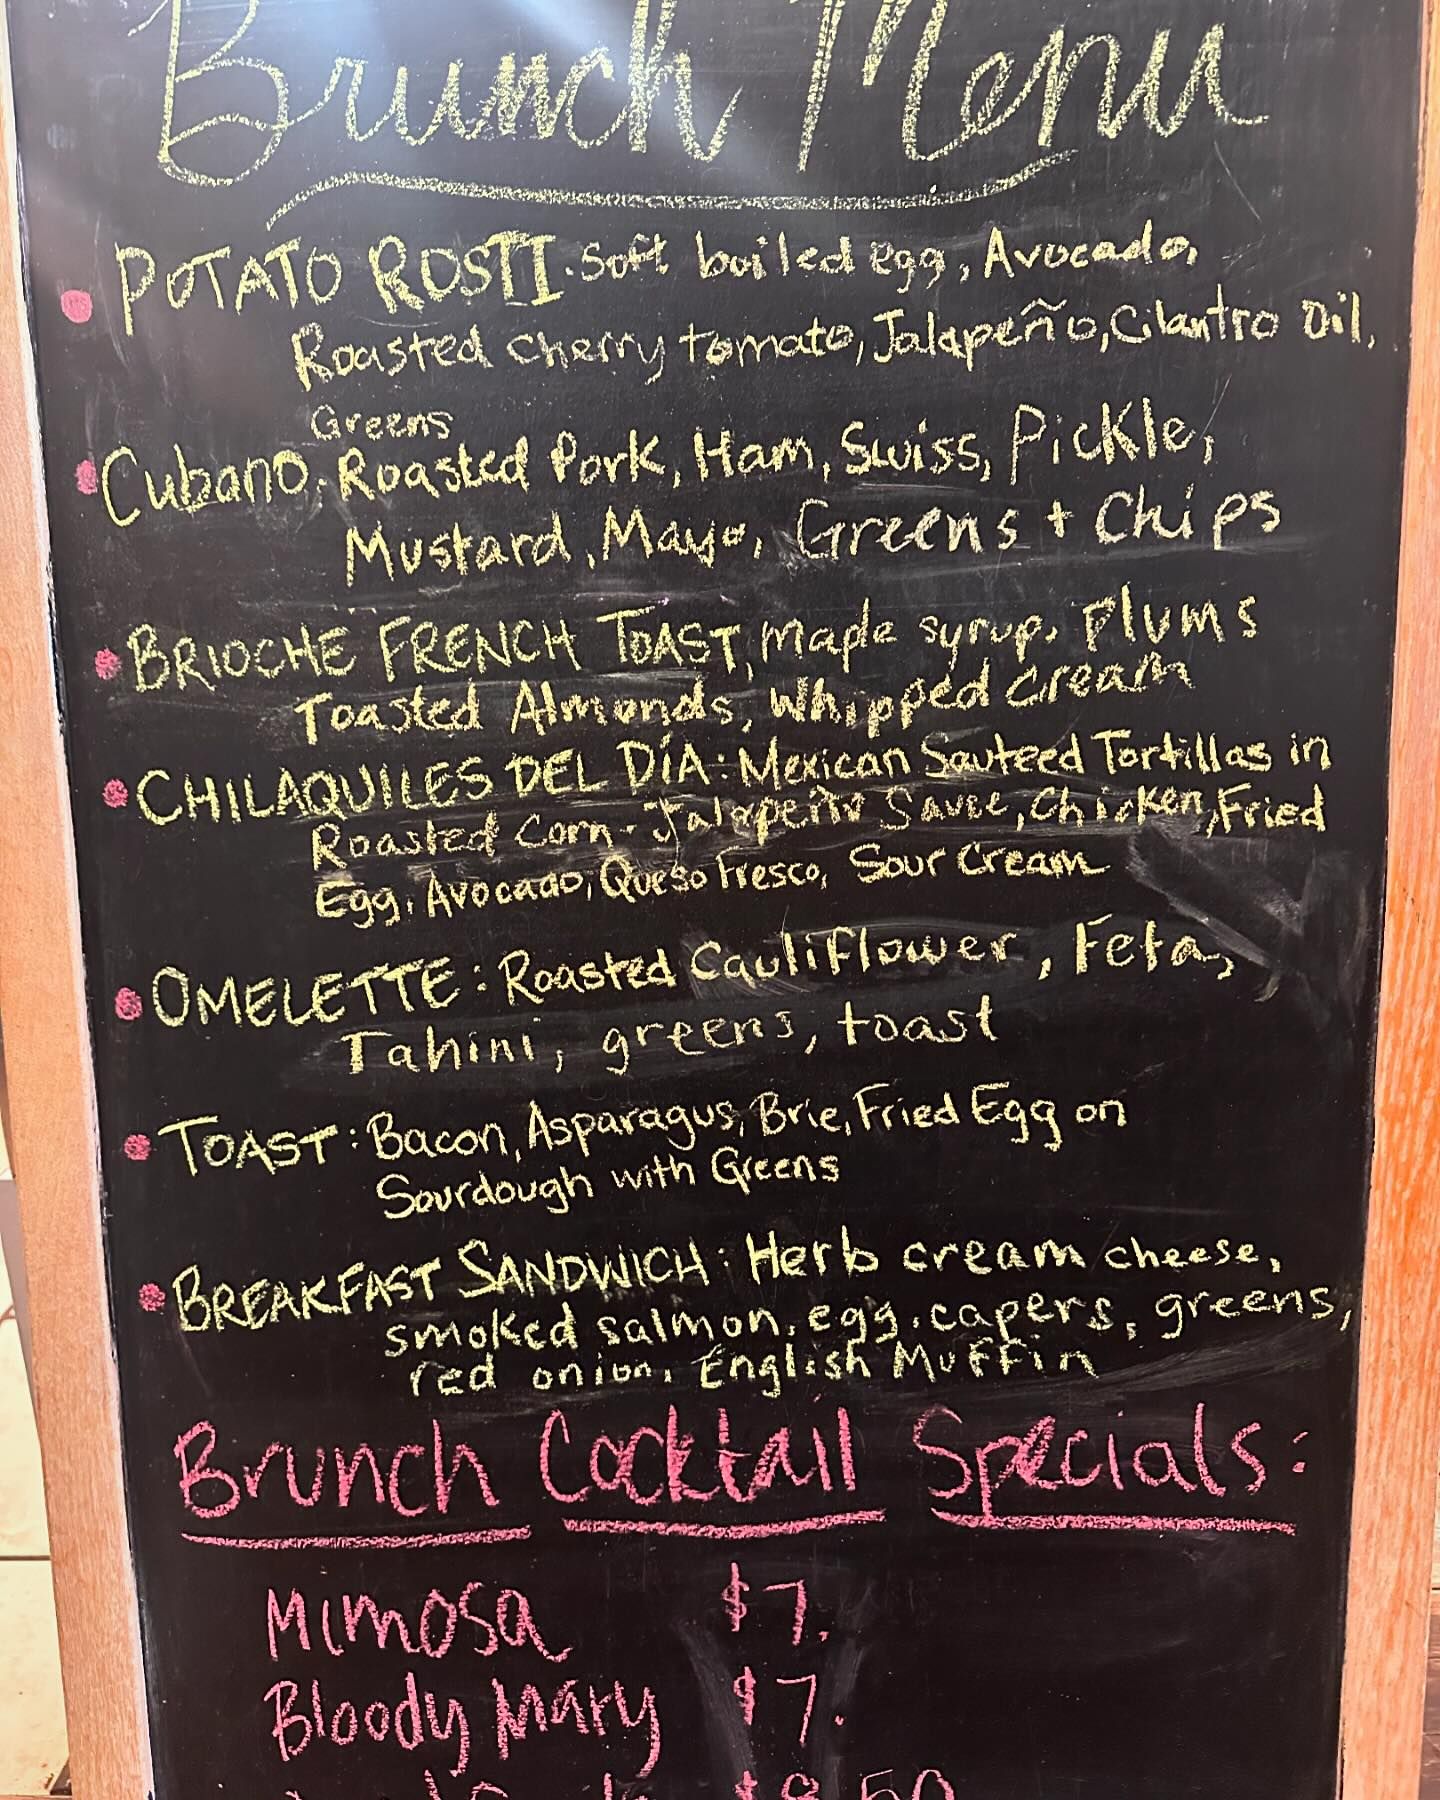 Brunch Menu
POTATO ROSTI. Soft boiled egg, Avocado,
Roasted cherry tomato, Jalapeño, Cilantro Oil,
Greens
Cubano. Roasted Pork, Ham, Swiss, Pickle,
Mustard, Mayo, Greens + Chips
BRIOCHE FRENCH TOAST, maple syrup, Plums
Toasted Almonds, Whipped cream
CHILAQUILES DEL DÍA: Mexican Sauteed Tortillas in
Roasted Corn-Jalapeño Sauce, Chicken, Fried
Egg, Avocado, Queso Fresco, Sour Cream
OMELETTE: Roasted Cauliflower, Feta,
Tahini, greens, toast
TOAST: Bacon, Asparagus, Brie, Fried Egg on
Sourdough with Greens
BREAKFAST SANDWICH: Herb cream cheese,
smoked salmon, egg, capers, greens,
red onion, English Muffin
Brunch Cocktail Specials:
Mimosa $7.
Bloody Mary $7.
$8.50